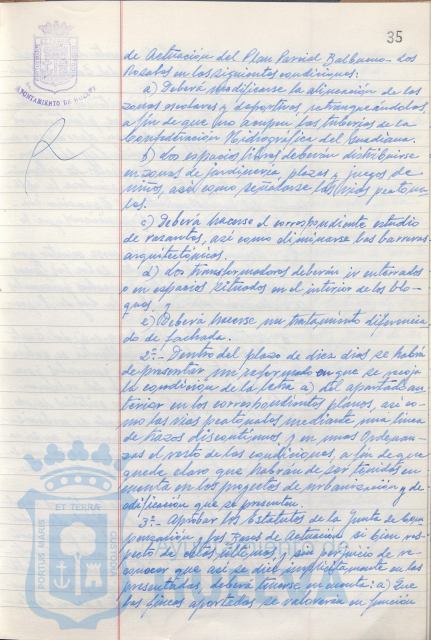 35
AYUNTAMIENTO DE HUELVA
de Actuación del Plan Parcial Balbueno-dos
Rosales en las siguientes condiciones:
a) Deberá modificarse la alineación de las
zonas escolares y deportivas, retranqueándolas,
a fin de que no ocupen las tuberías de la
Confederación Hidrográfica del Guadiana.
b) Los espacios libres deberán distribuirse
en zonas de jardinería, plazas y juegos de
niños, así como señalarse las vías peatona-
les.
c) Deberá hacerse el correspondiente estudio
de rasantes, así como eliminarse las barreras
arquitectónicas.
d) Los transformadores deberán ir enterrados
o en espacios situados en el interior de los blo-
ques, y
e) Deberá hacerse un tratamiento diferencia-
do de fachada.
2º.- Dentro del plazo de diez días se habrá
de presentar un reformado en que se recoja
la condición de la letra a) del apartado an-
terior en los correspondientes planos, así co-
mo las vías peatonales mediante una línea
de trazos discontinuos, y en unas Ordenan-
zas el resto de las condiciones, a fin de que
quede claro que habrán de ser tenidas en
cuenta en los proyectos de urbanización y de
edificación que se presenten.
3º.- Aprobar los Estatutos de la Junta de Com-
pensación y las Bases de Actuación si bien res-
pecto de estas últimas, y sin perjuicio de re-
conocer que así se dice implícitamente en las
presentadas, deberá tenerse en cuenta: a) Que
las fincas aportadas se valorarán en función
PORTUS MARIS
ET TERRÆ
CUSTODIA